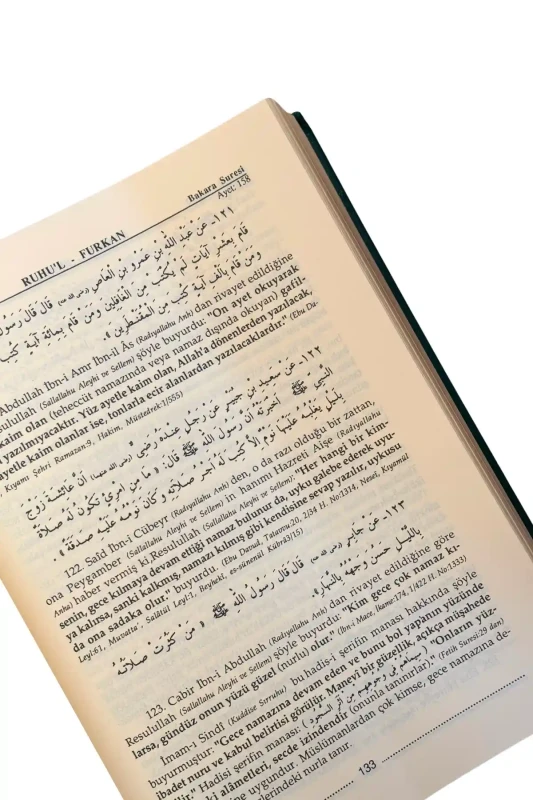 RUHU'L - FURKAN
Bakara Suresi
Ayet: 158
١٢١- عَنْ عَبْدِ اللَّهِ بْنِ عَمْرِو بْنِ الْعَاصِ (رضي الله عنه) قَالَ قَالَ رَسُولُ
قَامَ بِعَشْرِ آيَاتٍ لَمْ يُكْتَبْ مِنَ الْغَافِلِينَ وَمَنْ قَامَ بِمِائَةِ آيَةٍ كُتِبَ
وَمَنْ قَامَ بِأَلْفِ آيَةٍ كُتِبَ مِنَ الْمُقَنْطِرِينَ».
Abdullah Ibn-i Amr Ibn-il Âs (Radıyallahu Anh)dan rivayet edildiğine
Resulullah (Sallallahu Aleyhi ve Sellem) şöyle buyurdu: "On ayet okuyarak
kaim olan (teheccüt namazında veya namaz dışında okuyan) gafil-
yazılmıyacaktır. Yüz ayetle kaim olan, Allah'a dönenlerden yazılacak,
ayetle kaim olanlar ise, tonlarla ecir alanlardan yazılacaklardır." (Ebu Da-
Kıyamı Şehri Ramazan:9, Hakim, Müstedrek:1/555)
١٢٢- عَنْ سَعِيدِ بْنِ جُبَيْرٍ عَنْ رَجُلٍ عِنْدَهُ رَضِيٍّ (رضي الله عنهما) أَنَّ عَائِشَةَ زَوْجَ
النَّبِيِّ ﷺ أَخْبَرَتْهُ أَنَّ رَسُولَ اللَّهِ ﷺ قَالَ: «مَا مِنِ امْرِئٍ تَكُونُ لَهُ صَلَاةٌ
بِلَيْلٍ يَغْلِبُهُ عَلَيْهَا نَوْمٌ إِلَّا كُتِبَ لَهُ أَجْرُ صَلَاتِهِ وَكَانَ نَوْمُهُ عَلَيْهِ صَدَقَةً».
122. Saîd Ibn-i Cübeyr (Radıyallahu Anh)den, o da razı olduğu bir zattan,
ona Peygamber (Sallallahu Aleyhi ve Sellem) in hanımı Hazreti Aişe (Radıyallahu
Anha) haber vermiş ki,Resulullah (Sallallahu Aleyhi ve Sellem): "Her hangi bir kim-
senin, gece kılmaya devam ettiği namaz bulunur da, uyku galebe ederek uyu-
ya kalırsa, sanki kalkmış, namazı kılmış gibi kendisine sevap yazılır, uykusu
da ona sadaka olur." buyurdu. (Ebu Davud, Tatavvu:20, 2/34 H. No:1314, Nesei, Kıyamül
Leyl:61, Muvatta', Salâtül Leyl:1, Beyheki, es-sünenül Kübrâ3/15)
١٢٣- عَنْ جَابِرٍ (رضي الله عنه) قَالَ قَالَ رَسُولُ اللَّهِ ﷺ «مَنْ كَثُرَتْ صَلَاتُهُ
بِاللَّيْلِ حَسُنَ وَجْهُهُ بِالنَّهَارِ».
123. Cabir Ibn-i Abdullah (Radıyallahu Anh) dan rivayet edildiğine göre
Resulullah (Sallallahu Aleyhi ve Sellem) şöyle buyurdu: "Kim gece çok namaz kı-
larsa, gündüz onun yüzü güzel (nurlu) olur." (Ibn-i Mace, İkame:174, 1/422 H. No:1333)
Imam-ı Sindî (Kuddise Sırruhu) bu hadis-i şerifin manası hakkında şöyle
buyurmuştur: "Gece namazına devam eden ve bunu bol yapanın yüzünde
ibadet nuru ve kabul belirtisi görülür. Manevi bir güzellik, açıkça müşahede
ilir." Hadisi şerifin manası: (سيماهم في وجوههم من أثر السجود) "Onların yüz-
ki alâmetleri, secde izindendir (onunla tanınırlar)." (Fetih Suresi:29 dan)
ine uygundur. Müslümanlardan çok kimse, gece namazına de-
lerindeki nurla tanır.
133